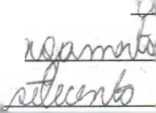 rgamento
setecento